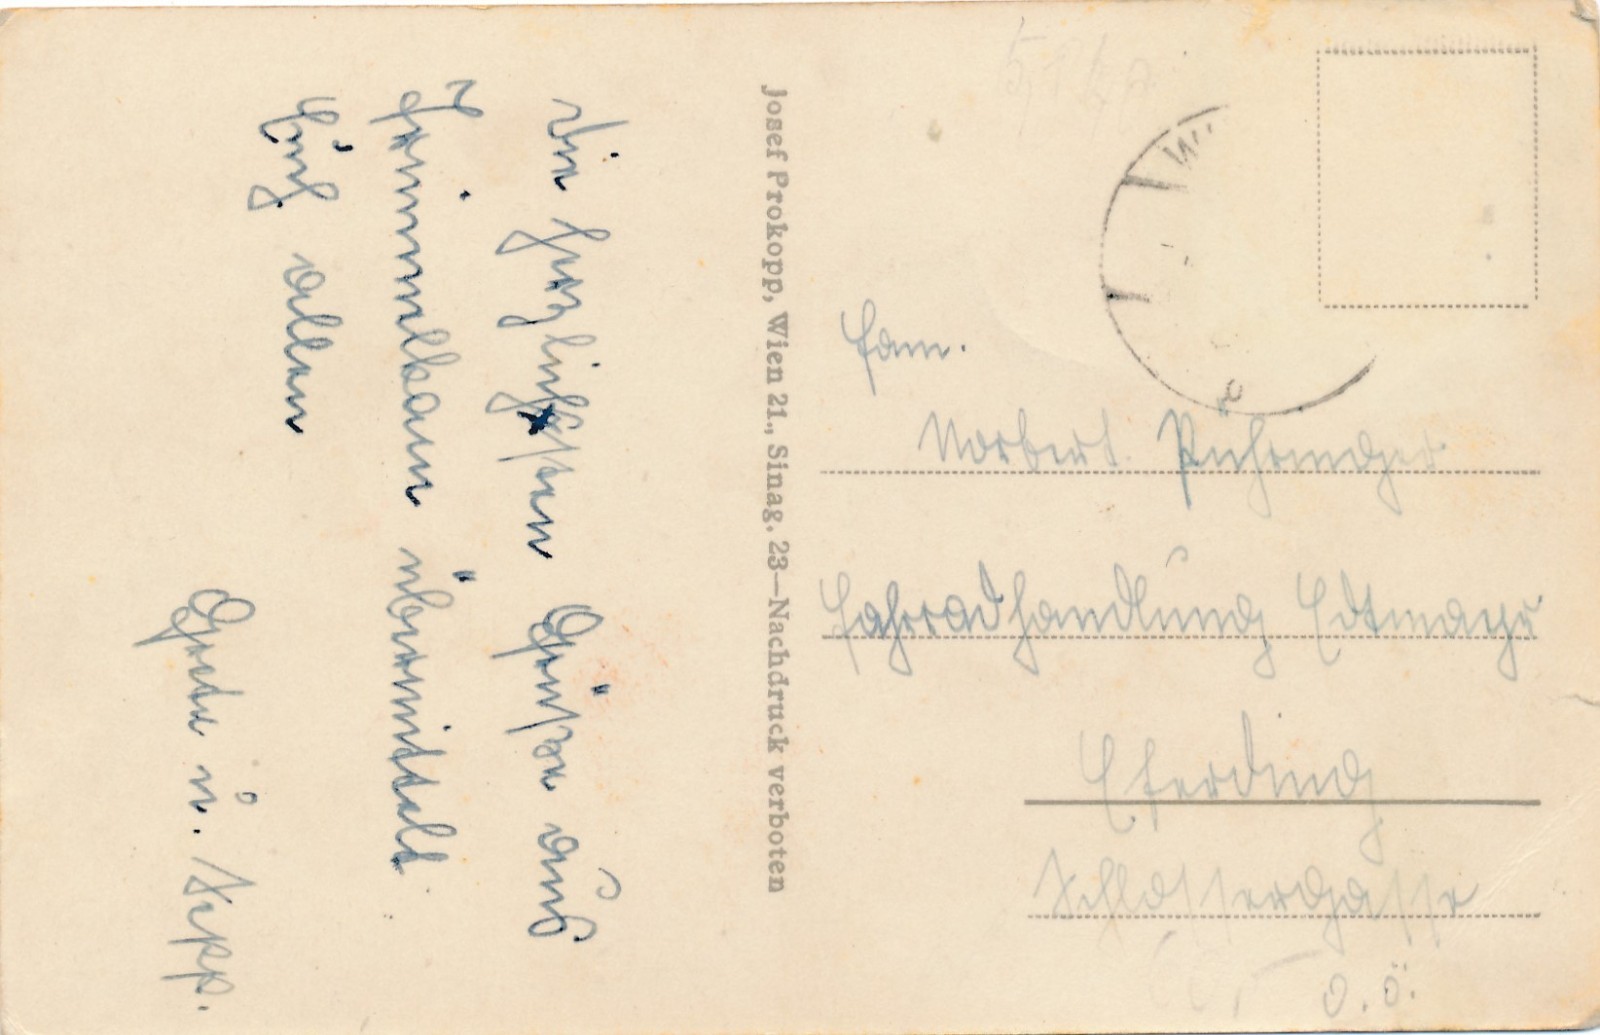 Die herzlichsten Grüße aus
Himmelbaur übermittelt
Euch allen
Grete u. Sepp.
Josef Prokopp, Wien 21., Sinag. 23—Nachdruck verboten
Fam.
Norbert Pühringer
Fahrradhandlung Edtmayr
Eferding
Schlossergasse
O.Ö.